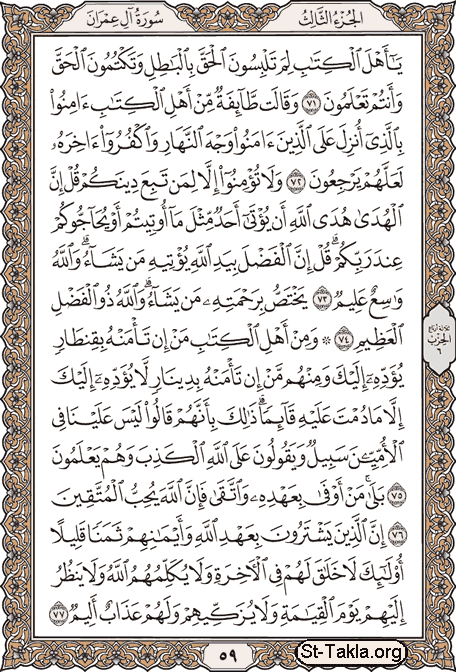 الجزء الثالث
سورة آل عمران
يَٰٓأَهْلَ ٱلْكِتَٰبِ لِمَ تَلْبِسُونَ ٱلْحَقَّ بِٱلْبَٰطِلِ وَتَكْتُمُونَ ٱلْحَقَّ
وَأَنتُمْ تَعْلَمُونَ ٧١ وَقَالَت طَّآئِفَةٌ مِّنْ أَهْلِ ٱلْكِتَٰبِ ءَامِنُوا۟
بِٱلَّذِىٓ أُنزِلَ عَلَى ٱلَّذِينَ ءَامَنُوا۟ وَجْهَ ٱلنَّهَارِ وَٱكْفُرُوٓا۟ ءَاخِرَهُۥ
لَعَلَّهُمْ يَرْجِعُونَ ٧٢ وَلَا تُؤْمِنُوٓا۟ إِلَّا لِمَن تَبِعَ دِينَكُمْ قُلْ إِنَّ
ٱلْهُدَىٰ هُدَى ٱللَّهِ أَن يُؤْتَىٰٓ أَحَدٌ مِّثْلَ مَآ أُوتِيتُمْ أَوْ يُحَآجُّوكُمْ
عِندَ رَبِّكُمْ ۗ قُلْ إِنَّ ٱلْفَضْلَ بِيَدِ ٱللَّهِ يُؤْتِيهِ مَن يَشَآءُ ۗ وَٱللَّهُ
وَٰسِعٌ عَلِيمٌ ٧٣ يَخْتَصُّ بِرَحْمَتِهِۦ مَن يَشَآءُ ۗ وَٱللَّهُ ذُو ٱلْفَضْلِ
ٱلْعَظِيمِ ٧٤ ۞ وَمِنْ أَهْلِ ٱلْكِتَٰبِ مَنْ إِن تَأْمَنْهُ بِقِنطَارٍ
يُؤَدِّهِۦٓ إِلَيْكَ وَمِنْهُم مَّنْ إِن تَأْمَنْهُ بِدِينَارٍ لَّا يُؤَدِّهِۦٓ إِلَيْكَ
إِلَّا مَا دُمْتَ عَلَيْهِ قَآئِمًا ۗ ذَٰلِكَ بِأَنَّهُمْ قَالُوا۟ لَيْسَ عَلَيْنَا فِى
ٱلْأُمِّيِّۦنَ سَبِيلٌ وَيَقُولُونَ عَلَى ٱللَّهِ ٱلْكَذِبَ وَهُمْ يَعْلَمُونَ
٧٥ بَلَىٰ مَنْ أَوْفَىٰ بِعَهْدِهِۦ وَٱتَّقَىٰ فَإِنَّ ٱللَّهَ يُحِبُّ ٱلْمُتَّقِينَ
٧٦ إِنَّ ٱلَّذِينَ يَشْتَرُونَ بِعَهْدِ ٱللَّهِ وَأَيْمَٰنِهِمْ ثَمَنًا قَلِيلًا
أُو۟لَٰٓئِكَ لَا خَلَٰقَ لَهُمْ فِى ٱلْءَاخِرَةِ وَلَا يُكَلِّمُهُمُ ٱللَّهُ وَلَا يَنظُرُ
إِلَيْهِمْ يَوْمَ ٱلْقِيَٰمَةِ وَلَا يُزَكِّيهِمْ وَلَهُمْ عَذَابٌ أَلِيمٌ ٧٧
الحزب
٦
٥٩
St-Takla.org